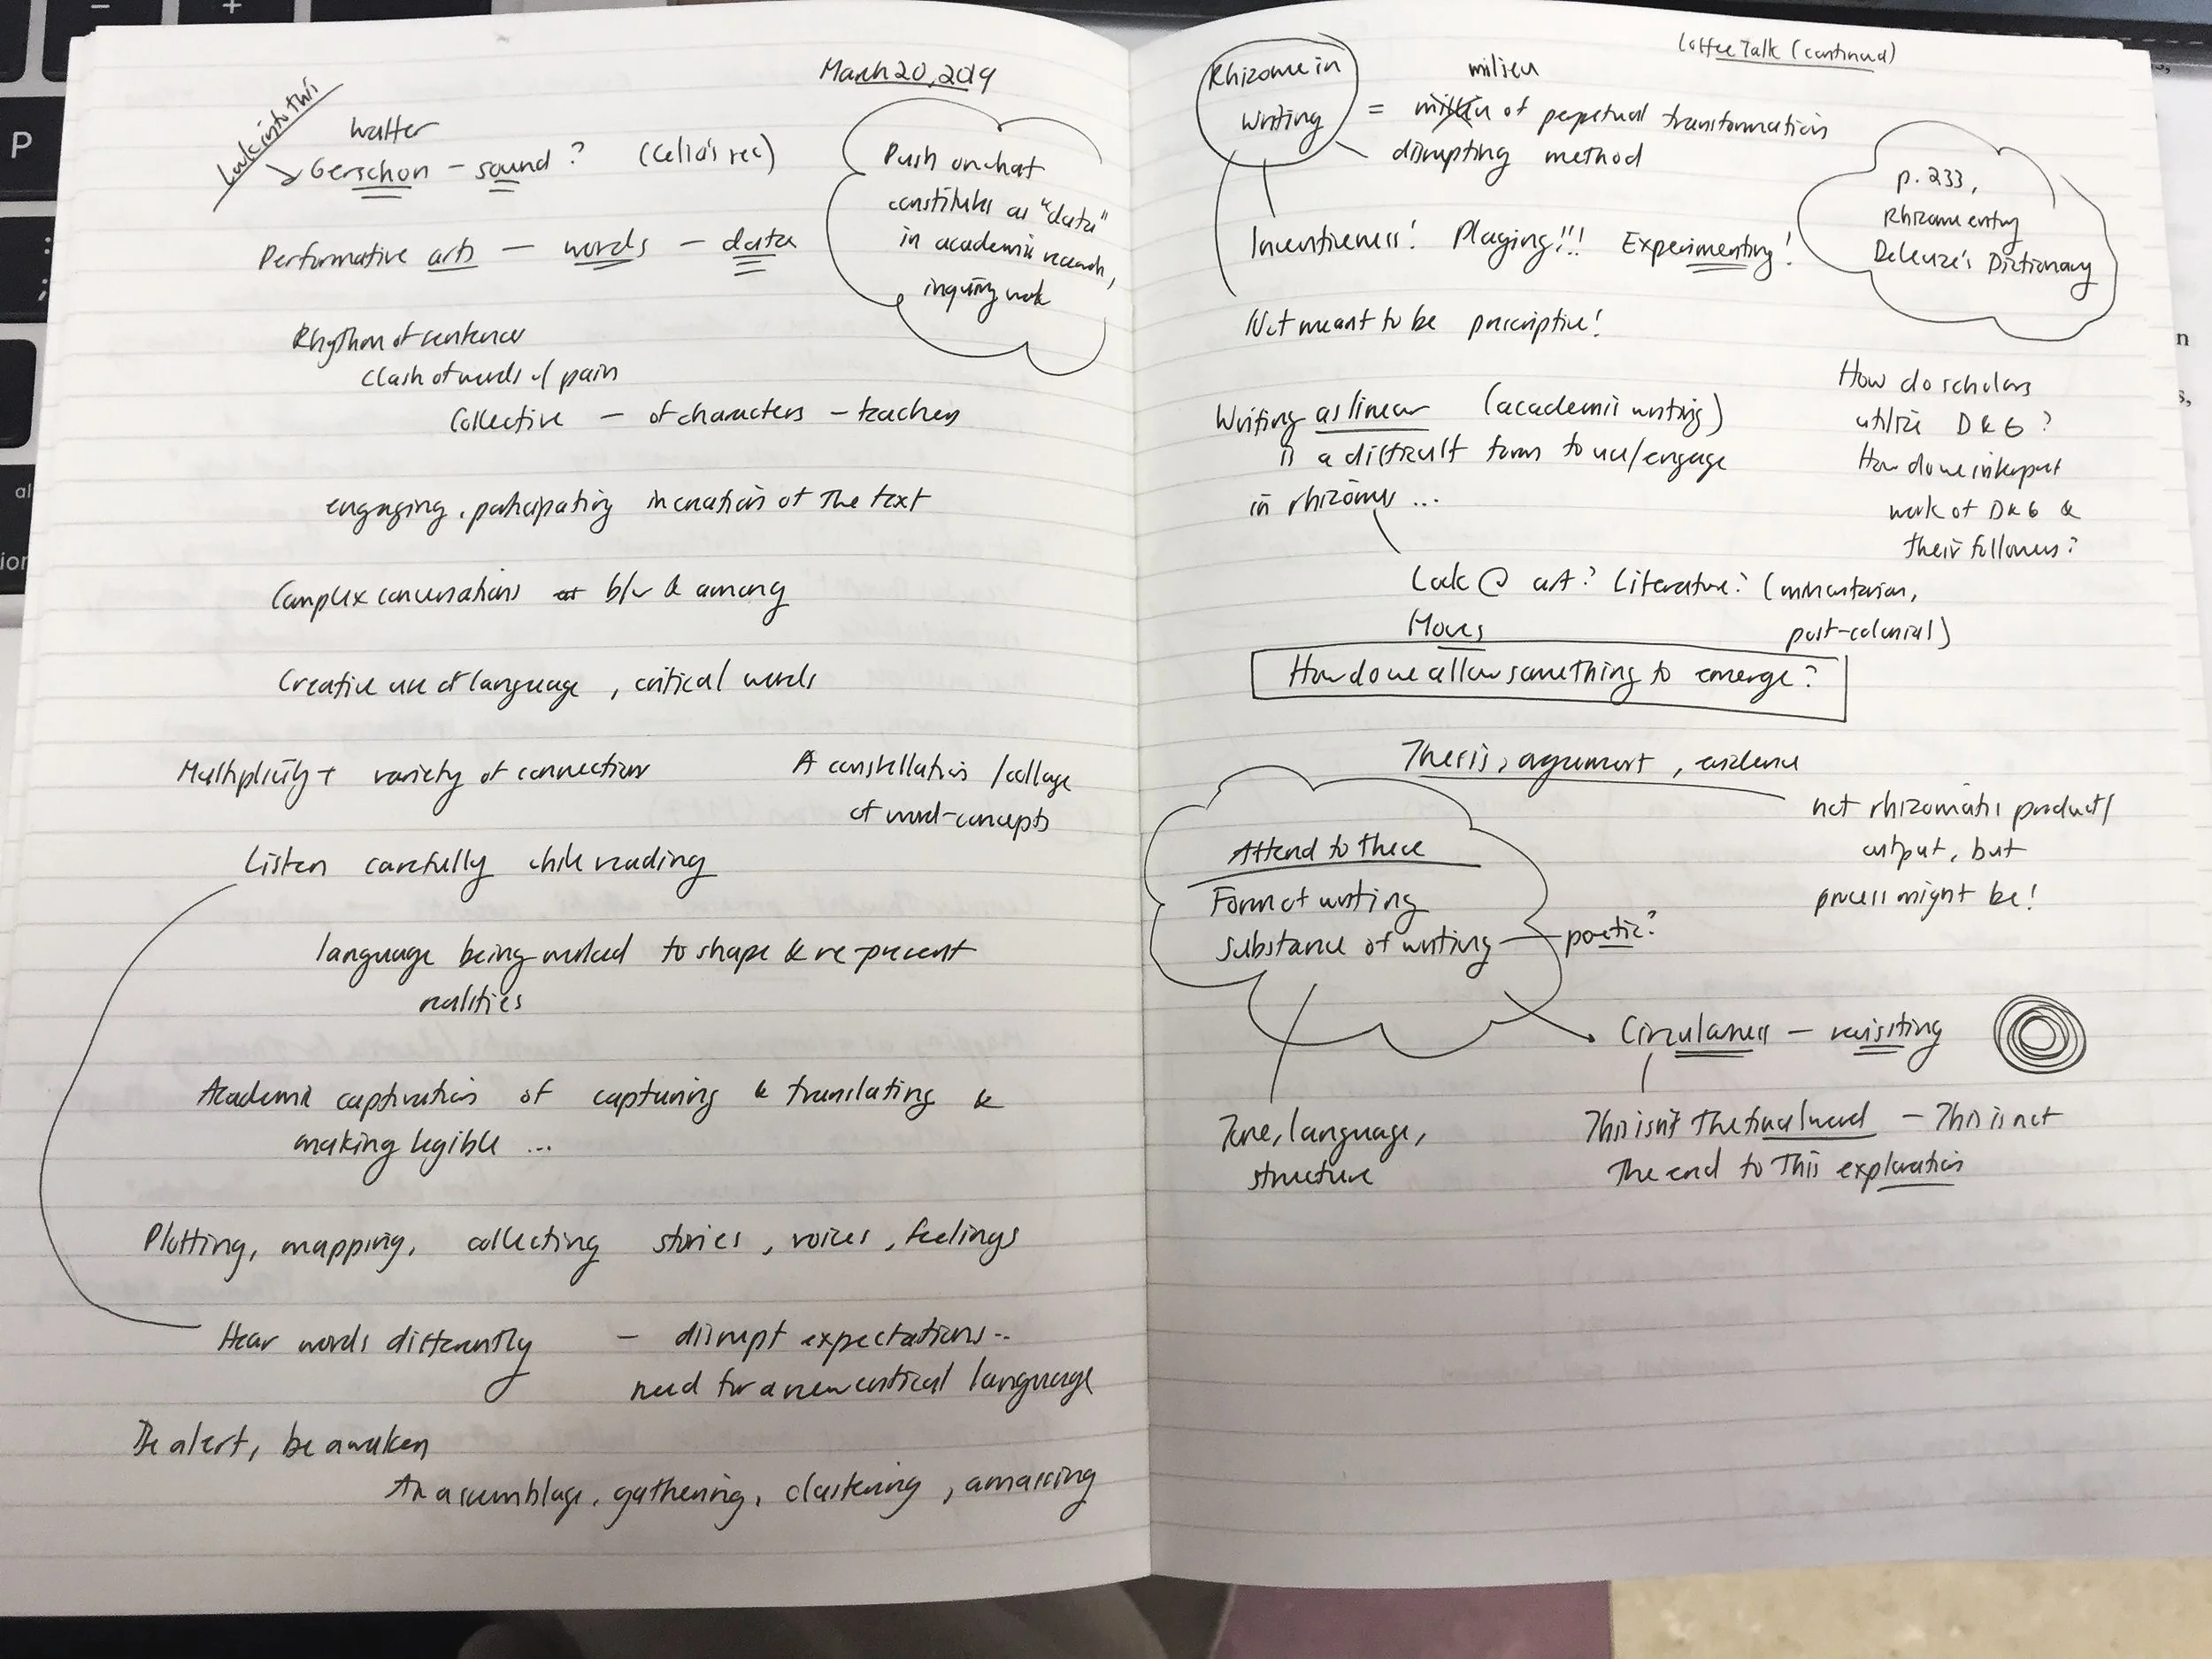 March 20, 2019
Look into this
Walter
Gerschon - sound? (Celia's rec)
Push on what
constitutes as "data"
in academic research,
inquiry work
Performative arts - words - data
Rhythm of sentences
Clash of words w/ pain
Collective - of characters - teachers
engaging, participating in creation of the text
Complex conversations at b/w & among
Creative use of language, critical words
Multiplicity + variety of connections
A constellation / collage
of word-concepts
Listen carefully while reading
language being worked to shape & re-present
realities
Academic captivation of capturing & translating &
making legible ...
Plotting, mapping, collecting stories, voices, feelings
Hear words differently - disrupt expectations..
need for a new critical language
Be alert, be awaken
An assemblage, gathering, clustering, amassing
Coffee Talk (continued)
Rhizome in
writing
milieu
= of perpetual transformation
disrupting method
p. 233,
Rhizome entry
Deleuze's Dictionary
Inventiveness! Playing!!! Experimenting!
Not meant to be prescriptive!
Writing as linear (academic writing)
is a difficult form to use/engage
in rhizome ...
How do scholars
utilize D&G?
How do we interpret
work of D&G &
their followers?
Look @ art? Literature? (minoritarian,
post-colonial)
Moves
How do we allow something to emerge?
Thesis, argument, evidence
not rhizomatic product/
output, but
process might be!
Attend to these
Form of writing
Substance of writing - poetic?
Circularness - revisiting
Tone, language,
structure
This isn't the final word - This is not
the end to this exploration